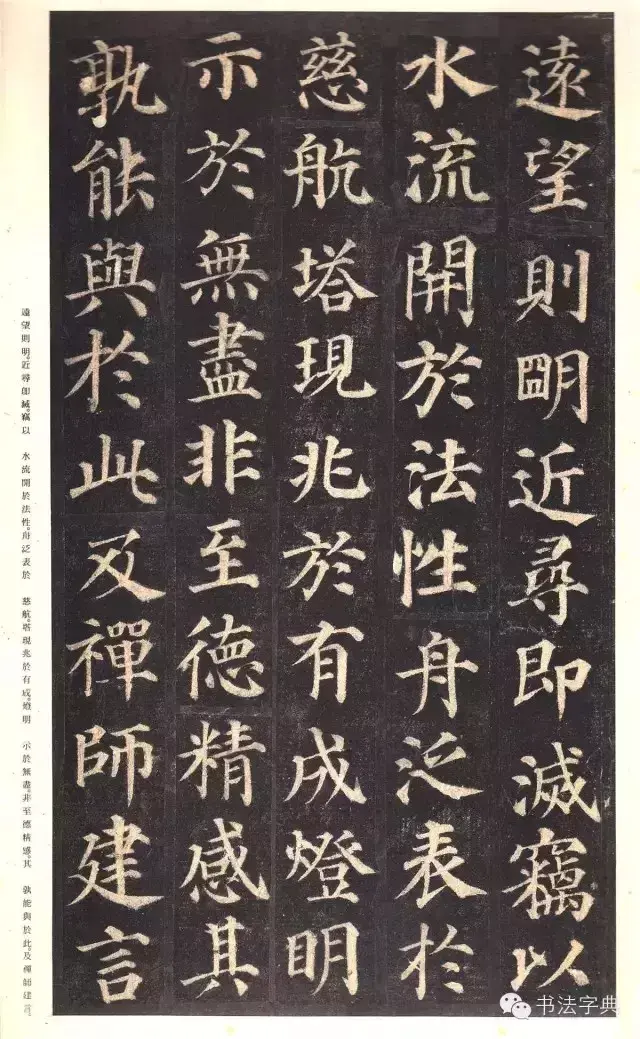 遠望則明近尋即滅竊以
水流開於法性舟泛表於
慈航塔現兆於有成燈明
示於無盡非至德精感其
孰能與於此及禪師建言
遠望則明。近尋即滅。竊以 水流開於法性。舟泛表於 慈航。塔現兆於有成。燈明 示於無盡。非至德精感。其 孰能與於此。及禪師建言。
书法字典